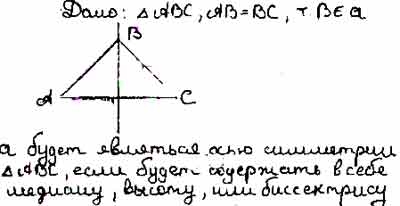 Дано: △ABC, AB=BC, т. B∈a
B
A C
a будет являться осью симметрии
△ABC, если будет содержать в себе
медиану, высоту, или биссектрису